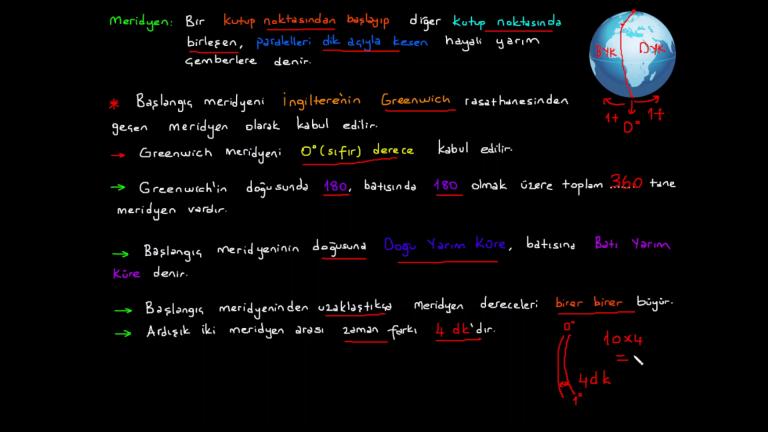 Meridyen: Bir kutup noktasından başlayıp diğer kutup noktasında
birleşen, paralelleri dik açıyla kesen hayali yarım
çemberlere denir.
BYK DYK
1+ 0° 1+
* Başlangıç meridyeni İngiltere'nin Greenwich rasathanesinden
geçen meridyen olarak kabul edilir.
→ Greenwich meridyeni 0° (sıfır) derece kabul edilir.
→ Greenwich'in doğusunda 180, batısında 180 olmak üzere toplam ...360... tane
meridyen vardır.
→ Başlangıç meridyeninin doğusuna Doğu Yarım Küre, batısına Batı Yarım
Küre denir.
→ Başlangıç meridyeninden uzaklaştıkça meridyen dereceleri birer birer büyür.
→ Ardışık iki meridyen arası zaman farkı 4 dk'dır.
0°
10x4
=
4dk
1°